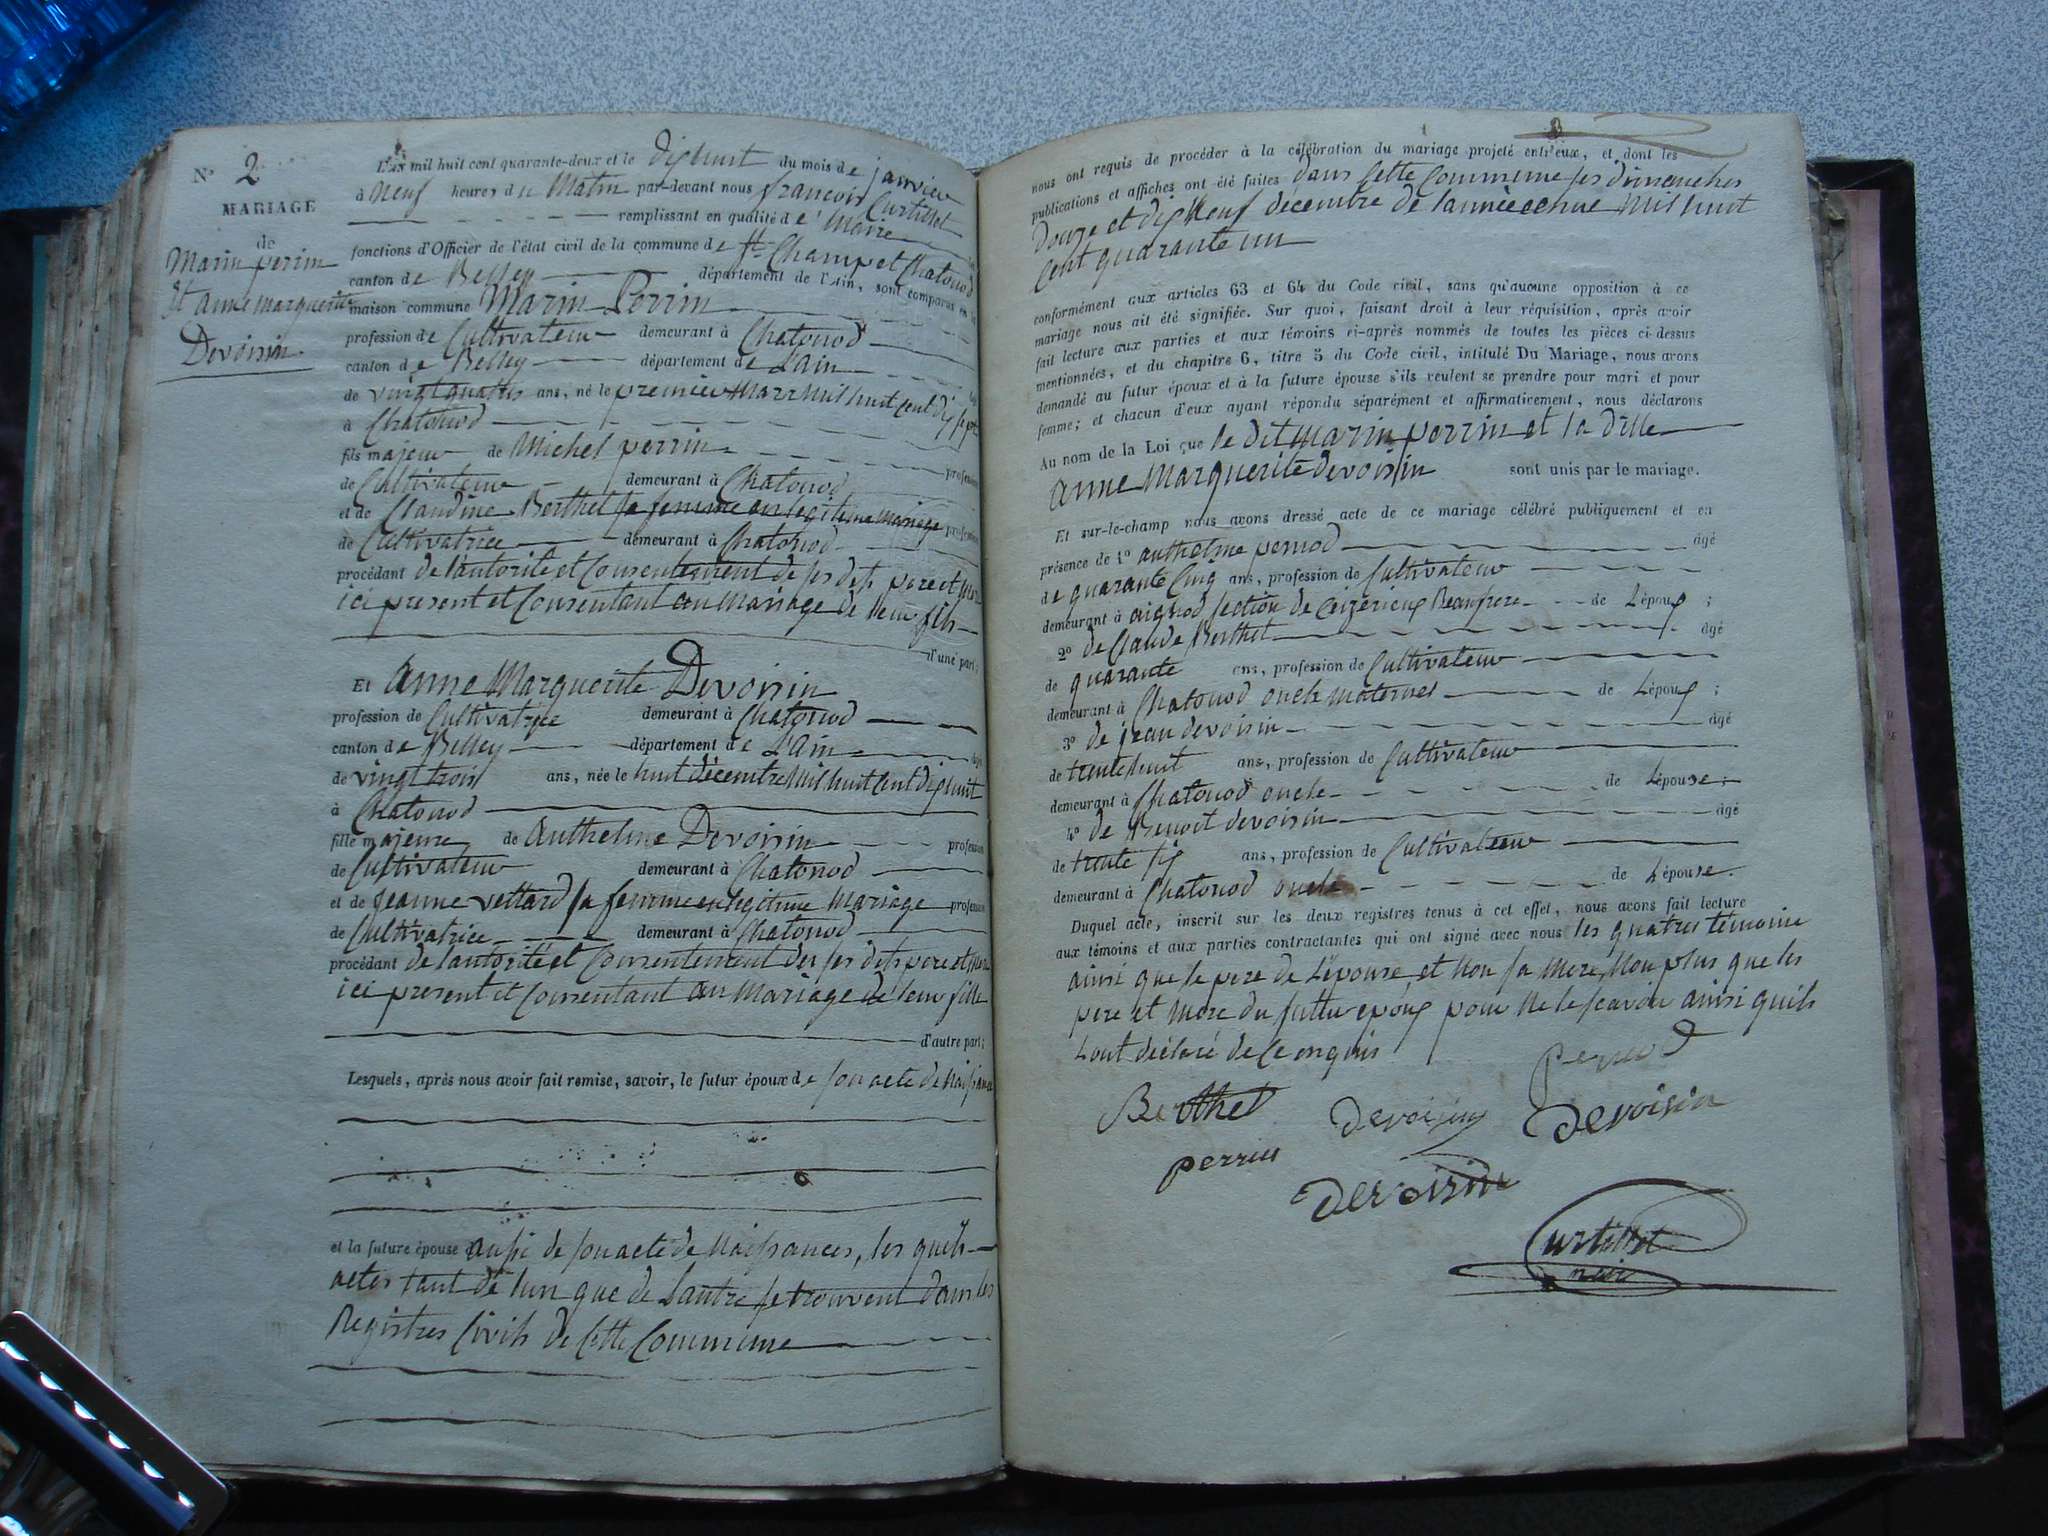 N° 2
MARIAGE
de
Marin perin
Et anne marguerite
Devoisin
L'an mil huit cent quarante-deux et le dixhuit du mois de janvier
à neuf heures du Matin par-devant nous francois Curtillet
remplissant en qualité de Maire
fonctions d'Officier de l'état civil de la commune de St Champ et Chatonod
canton de Belley département de l'Ain, sont comparus en la
maison commune Marin Perrin
profession de Cultivateur demeurant à Chatonod
canton de Belley département de L'ain
de vingt quatres ans, né le premier Mars Mil huit cent dix sept
à Chatonod
fils majeur de Michel perrin profession
de Cultivateur demeurant à Chatonod
et de Claudine Berthet sa femme en legitime mariage profession
de Cultivatrice demeurant à Chatonod
procédant de l'autorité et Consentement de ses dits pere et mere
ici present et Consentant au Mariage de leur fils
d'une part;
Et Anne Marguerite Devoisin
profession de Cultivatrice demeurant à Chatonod
canton de Belley département de L'Ain âgé
de vingt trois ans, née le huit décembre Mil huit Cent dixhuit
à Chatonod
fille majeure de Anthelme Devoisin profession
de Cultivateur demeurant à Chatonod
et de Jeanne Vettard sa femme en legitime Mariage profession
de Cultivatrice demeurant à Chatonod
procédant de l'autorité et Consentement de ses dits pere et mere
ici present et Consentant au Mariage de leur fille
d'autre part;
Lesquels, après nous avoir fait remise, savoir, le futur époux de son acte de Naissance
et la future épouse aussi de son acte de Naissances, les quels
actes tant de lun que de Lautre se trouvent dans les
Registres Civils de Cette Commune
nous ont requis de procéder à la célébration du mariage projeté entr'eux, et dont les
publications et affiches ont été faites dans Cette Commune les dimanches
Douze et dix Neuf décembre de l'année echue Mil huit
Cent quarante un
conformément aux articles 63 et 64 du Code civil, sans qu'aucune opposition à ce
mariage nous ait été signifiée. Sur quoi, faisant droit à leur réquisition, après avoir
fait lecture aux parties et aux témoins ci-après nommés de toutes les pièces ci-dessus
mentionnées, et du chapitre 6, titre 5 du Code civil, intitulé Du Mariage, nous avons
demandé au futur époux et à la future épouse s'ils veulent se prendre pour mari et pour
femme; et chacun d'eux ayant répondu séparément et affirmativement, nous déclarons
Au nom de la Loi que le dit Marin perrin et la dille
Anne Marguerite devoisin sont unis par le mariage.
Et sur-le-champ nous avons dressé acte de ce mariage célébré publiquement et en
présence de 1° anthelme pernod âgé
de quarante Cinq ans, profession de Cultivateur
demeurant à aignod section de Ceizerieux Beaufrere de L'époux ;
2° de Claude Berthet âgé
de quarante ans, profession de Cultivateur
demeurant à Chatonod oncle maternel de L'époux ;
3° de jean devoisin âgé
de trente huit ans, profession de Cultivateur
demeurant à Chatonod oncle de L'épouse ;
4° de Benoit devoisin âgé
de trente six ans, profession de Cultivateur
demeurant à Chatonod oncle de L'épouse.
Duquel acte, inscrit sur les deux registres tenus à cet effet, nous avons fait lecture
aux témoins et aux parties contractantes qui ont signé avec nous les quatres témoins
ainsi que le pere de L'épouse, et Non sa Mere, Non plus que les
pere et Mere du futur epoux pour Ne le scavoir ainsi quils
Lont déclaré de Ce enquis
Pernod
Berthet devoisin devoisin
perrin
devoisin
Curtillet
maire